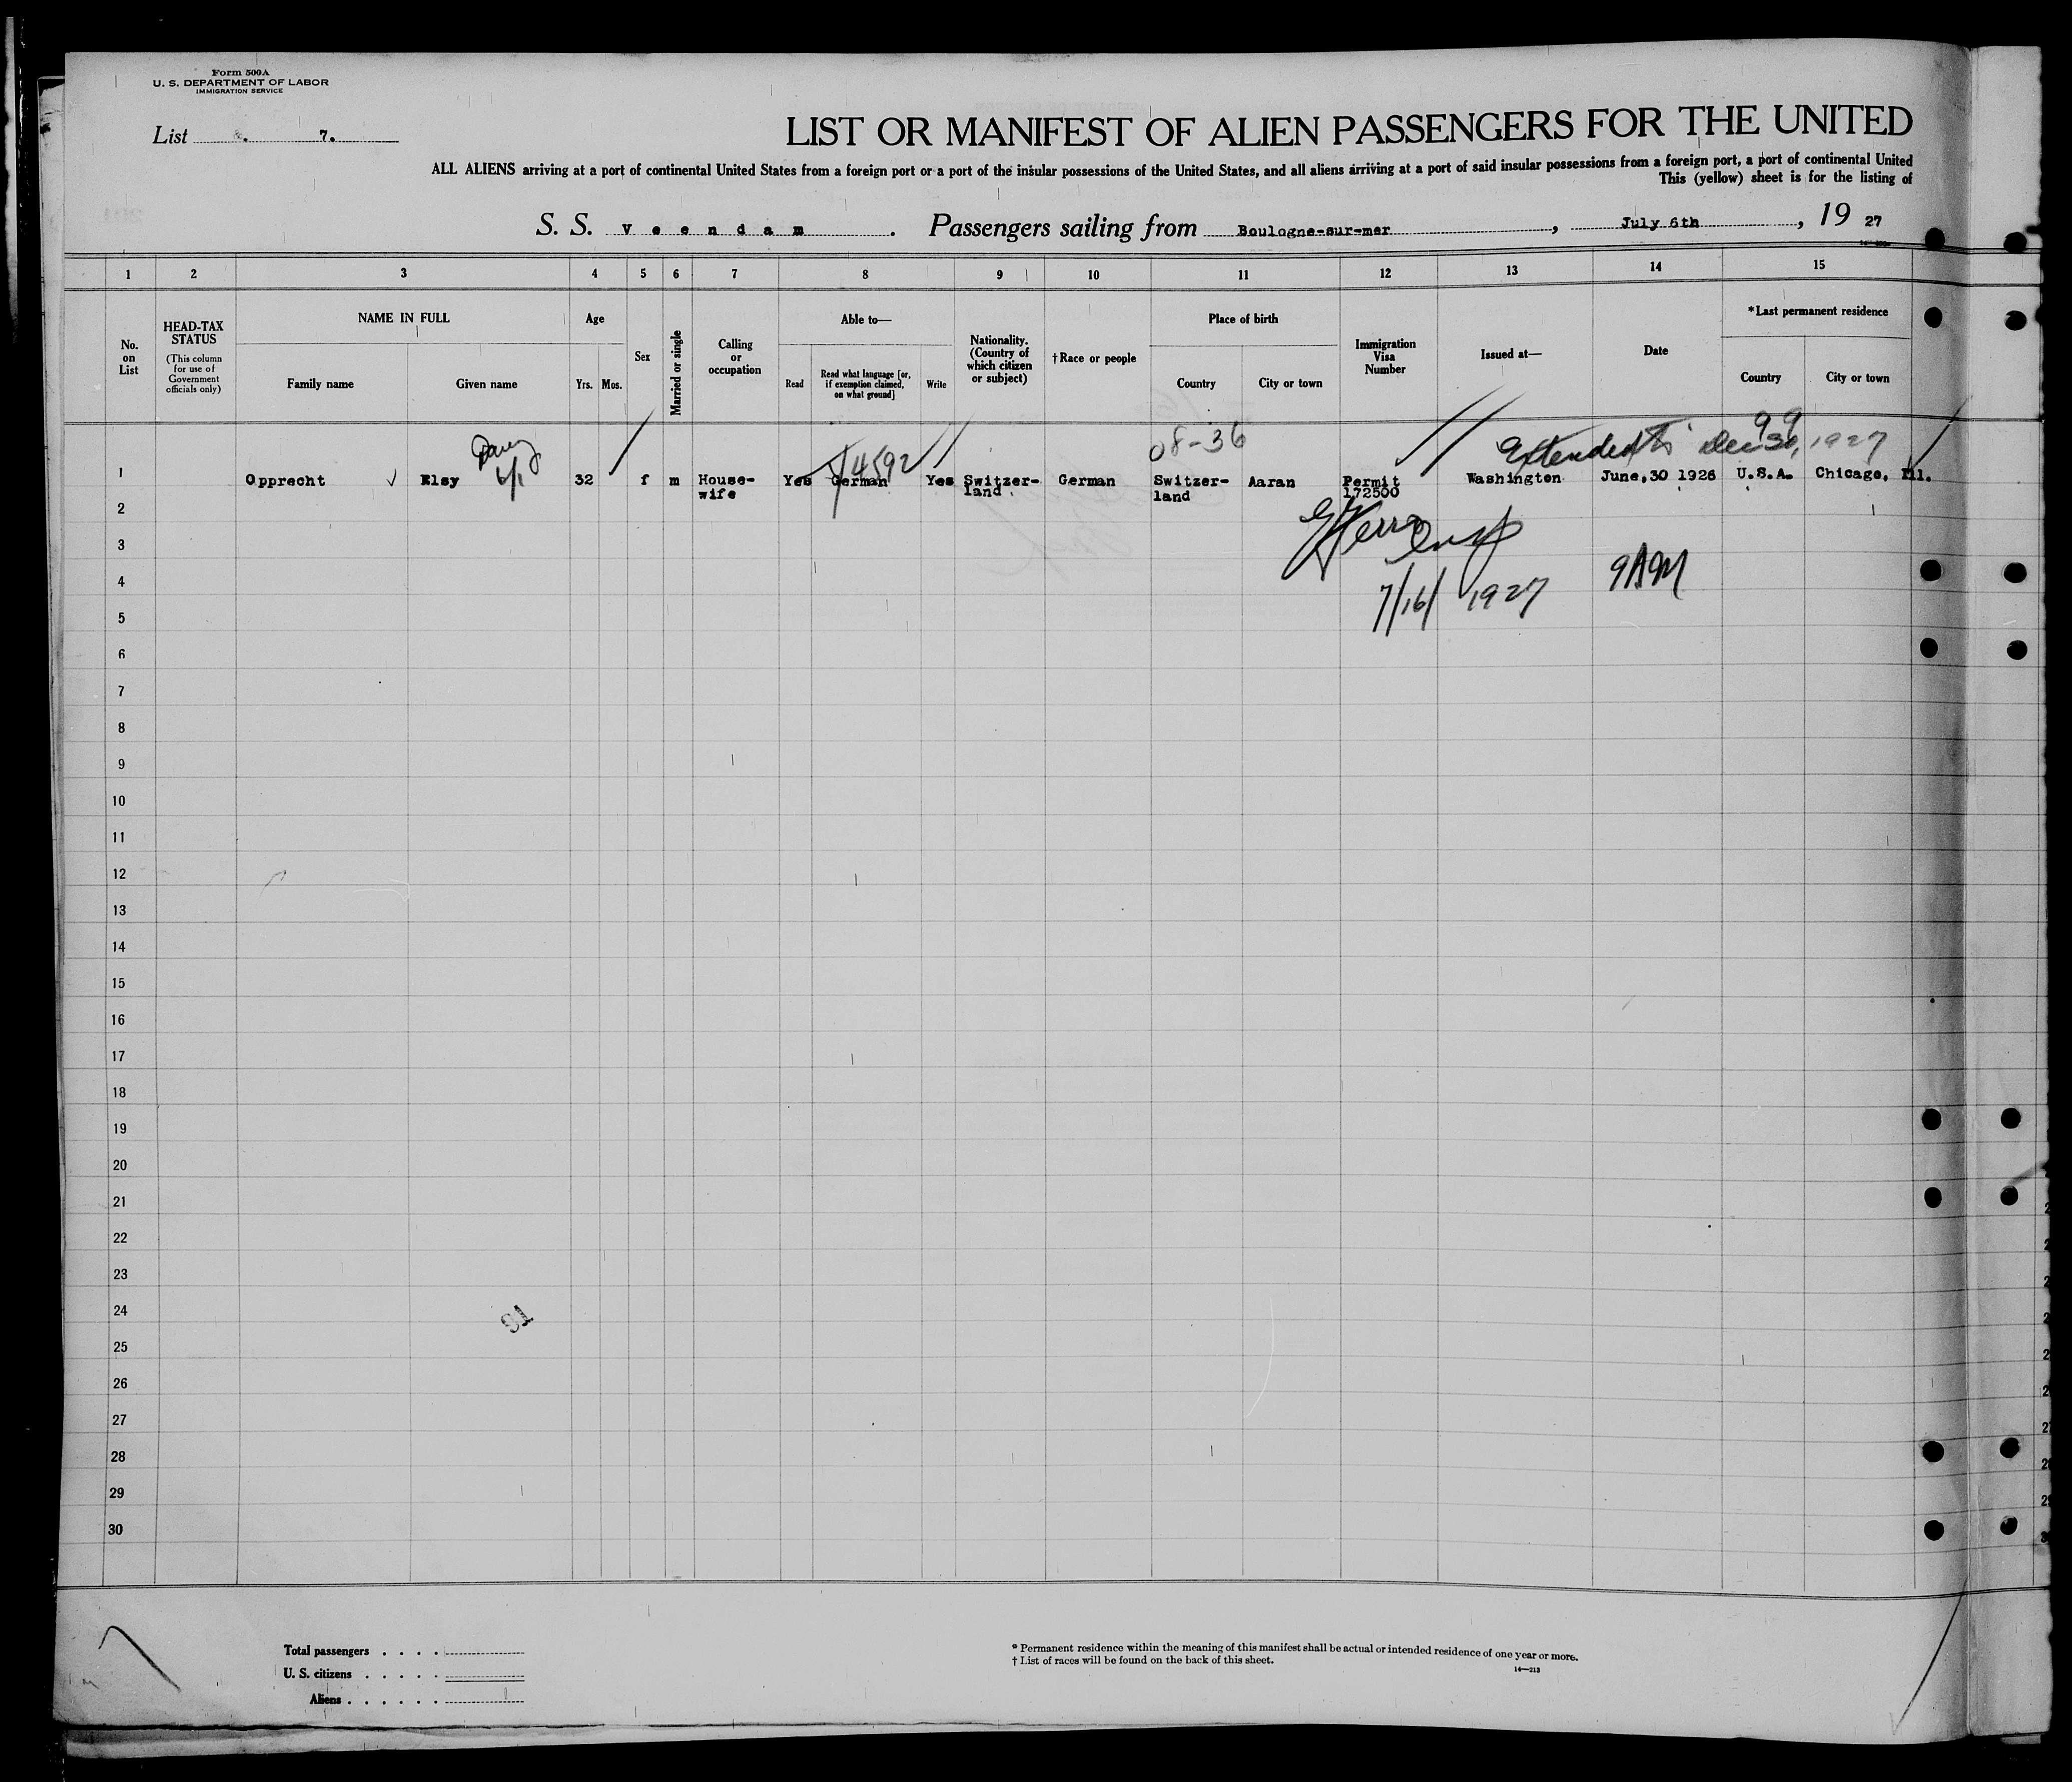 Form 500A
U. S. DEPARTMENT OF LABOR
IMMIGRATION SERVICE
List 7.
LIST OR MANIFEST OF ALIEN PASSENGERS FOR THE UNITED
ALL ALIENS arriving at a port of continental United States from a foreign port or a port of the insular possessions of the United States, and all aliens arriving at a port of said insular possessions from a foreign port, a port of continental United
This (yellow) sheet is for the listing of
S. S. V e e n d a m . Passengers sailing from Boulogne-sur-mer , July 6th , 19 27
1 2 3 4 5 6 7 8 9 10 11 12 13 14 15
No. on List
HEAD-TAX STATUS
(This column for use of Government officials only)
NAME IN FULL
Family name
Given name
Age
Yrs. Mos.
Sex
Married or single
Calling or occupation
Able to—
Read
Read what language [or, if exemption claimed, on what ground]
Write
Nationality. (Country of which citizen or subject)
†Race or people
Place of birth
Country
City or town
Immigration Visa Number
Issued at—
Date
*Last permanent residence
Country
City or town
08-36
99
Extended to Dec 30, 1927
6/1
14592
1 Opprecht Elsy 32 f m House- Yes German Yes Switzer- German Switzer- Aaran Permit Washington June,30 1926 U.S.A. Chicago, Ill.
wife land land 172500
2
3
Insp
9AM
4
7/16/1927
5
6
7
8
9
10
11
12
13
14
15
16
17
18
19
20
21
22
23
24
25
26
27
28
29
30
Total passengers . . . .
U. S. citizens . . . . .
Aliens . . . . . .
* Permanent residence within the meaning of this manifest shall be actual or intended residence of one year or more.
† List of races will be found on the back of this sheet.
14—213